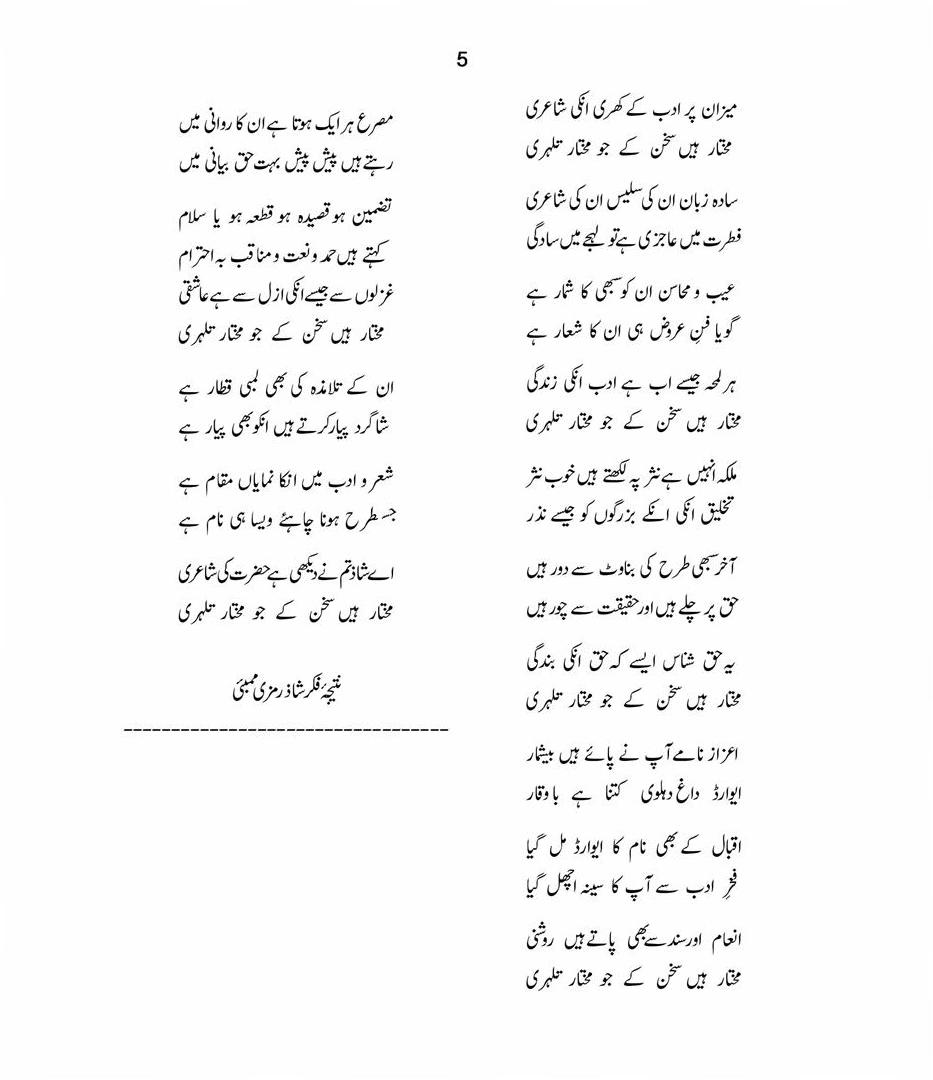 5
میزان پر ادب کے کھری انکی شاعری
مختار ہیں سخن کے جو مختار تلہری
سادہ زبان ان کی سلیس ان کی شاعری
فطرت میں عاجزی ہے تو لہجے میں سادگی
عیب و محاسن ان کو سبھی کا شمار ہے
گویا فنِ عروض ہی ان کا شعار ہے
ہر لمحہ جیسے اب ہے ادب انکی زندگی
مختار ہیں سخن کے جو مختار تلہری
ملکہ انہیں ہے نثر پہ لکھتے ہیں خوب نثر
تخلیق انکی انکے بزرگوں کو جیسے نذر
آخر سبھی طرح کی بناوٹ سے دور ہیں
حق پر چلے ہیں اور حقیقت سے چور ہیں
یہ حق شناس ایسے کہ حق انکی بندگی
مختار ہیں سخن کے جو مختار تلہری
اعزاز نامے آپ نے پائے ہیں بیشمار
ایوارڈ داغ دہلوی کتنا ہے با وقار
اقبال کے بھی نام کا ایوارڈ مل گیا
فخرِ ادب سے آپ کا سینہ اچھل گیا
انعام اور سند سے بھی پاتے ہیں روشنی
مختار ہیں سخن کے جو مختار تلہری
مصرع ہر ایک ہوتا ہے ان کا روانی میں
رہتے ہیں پیش پیش بہت حق بیانی میں
تضمین ہو قصیدہ ہو قطعہ ہو یا سلام
کہتے ہیں حمد و نعت و مناقب بہ احترام
غزلوں سے جیسے انکی ازل سے ہے عاشقی
مختار ہیں سخن کے جو مختار تلہری
ان کے تلامذہ کی بھی لمبی قطار ہے
شاگرد پیار کرتے ہیں انکو بھی پیار ہے
شعر و ادب میں انکا نمایاں مقام ہے
جسطرح ہونا چاہئے ویسا ہی نام ہے
اے شاذ تم نے دیکھی ہے حضرت کی شاعری
مختار ہیں سخن کے جو مختار تلہری
نتیجۂ فکر شاذ رمزی ممبئی
----------------------------------